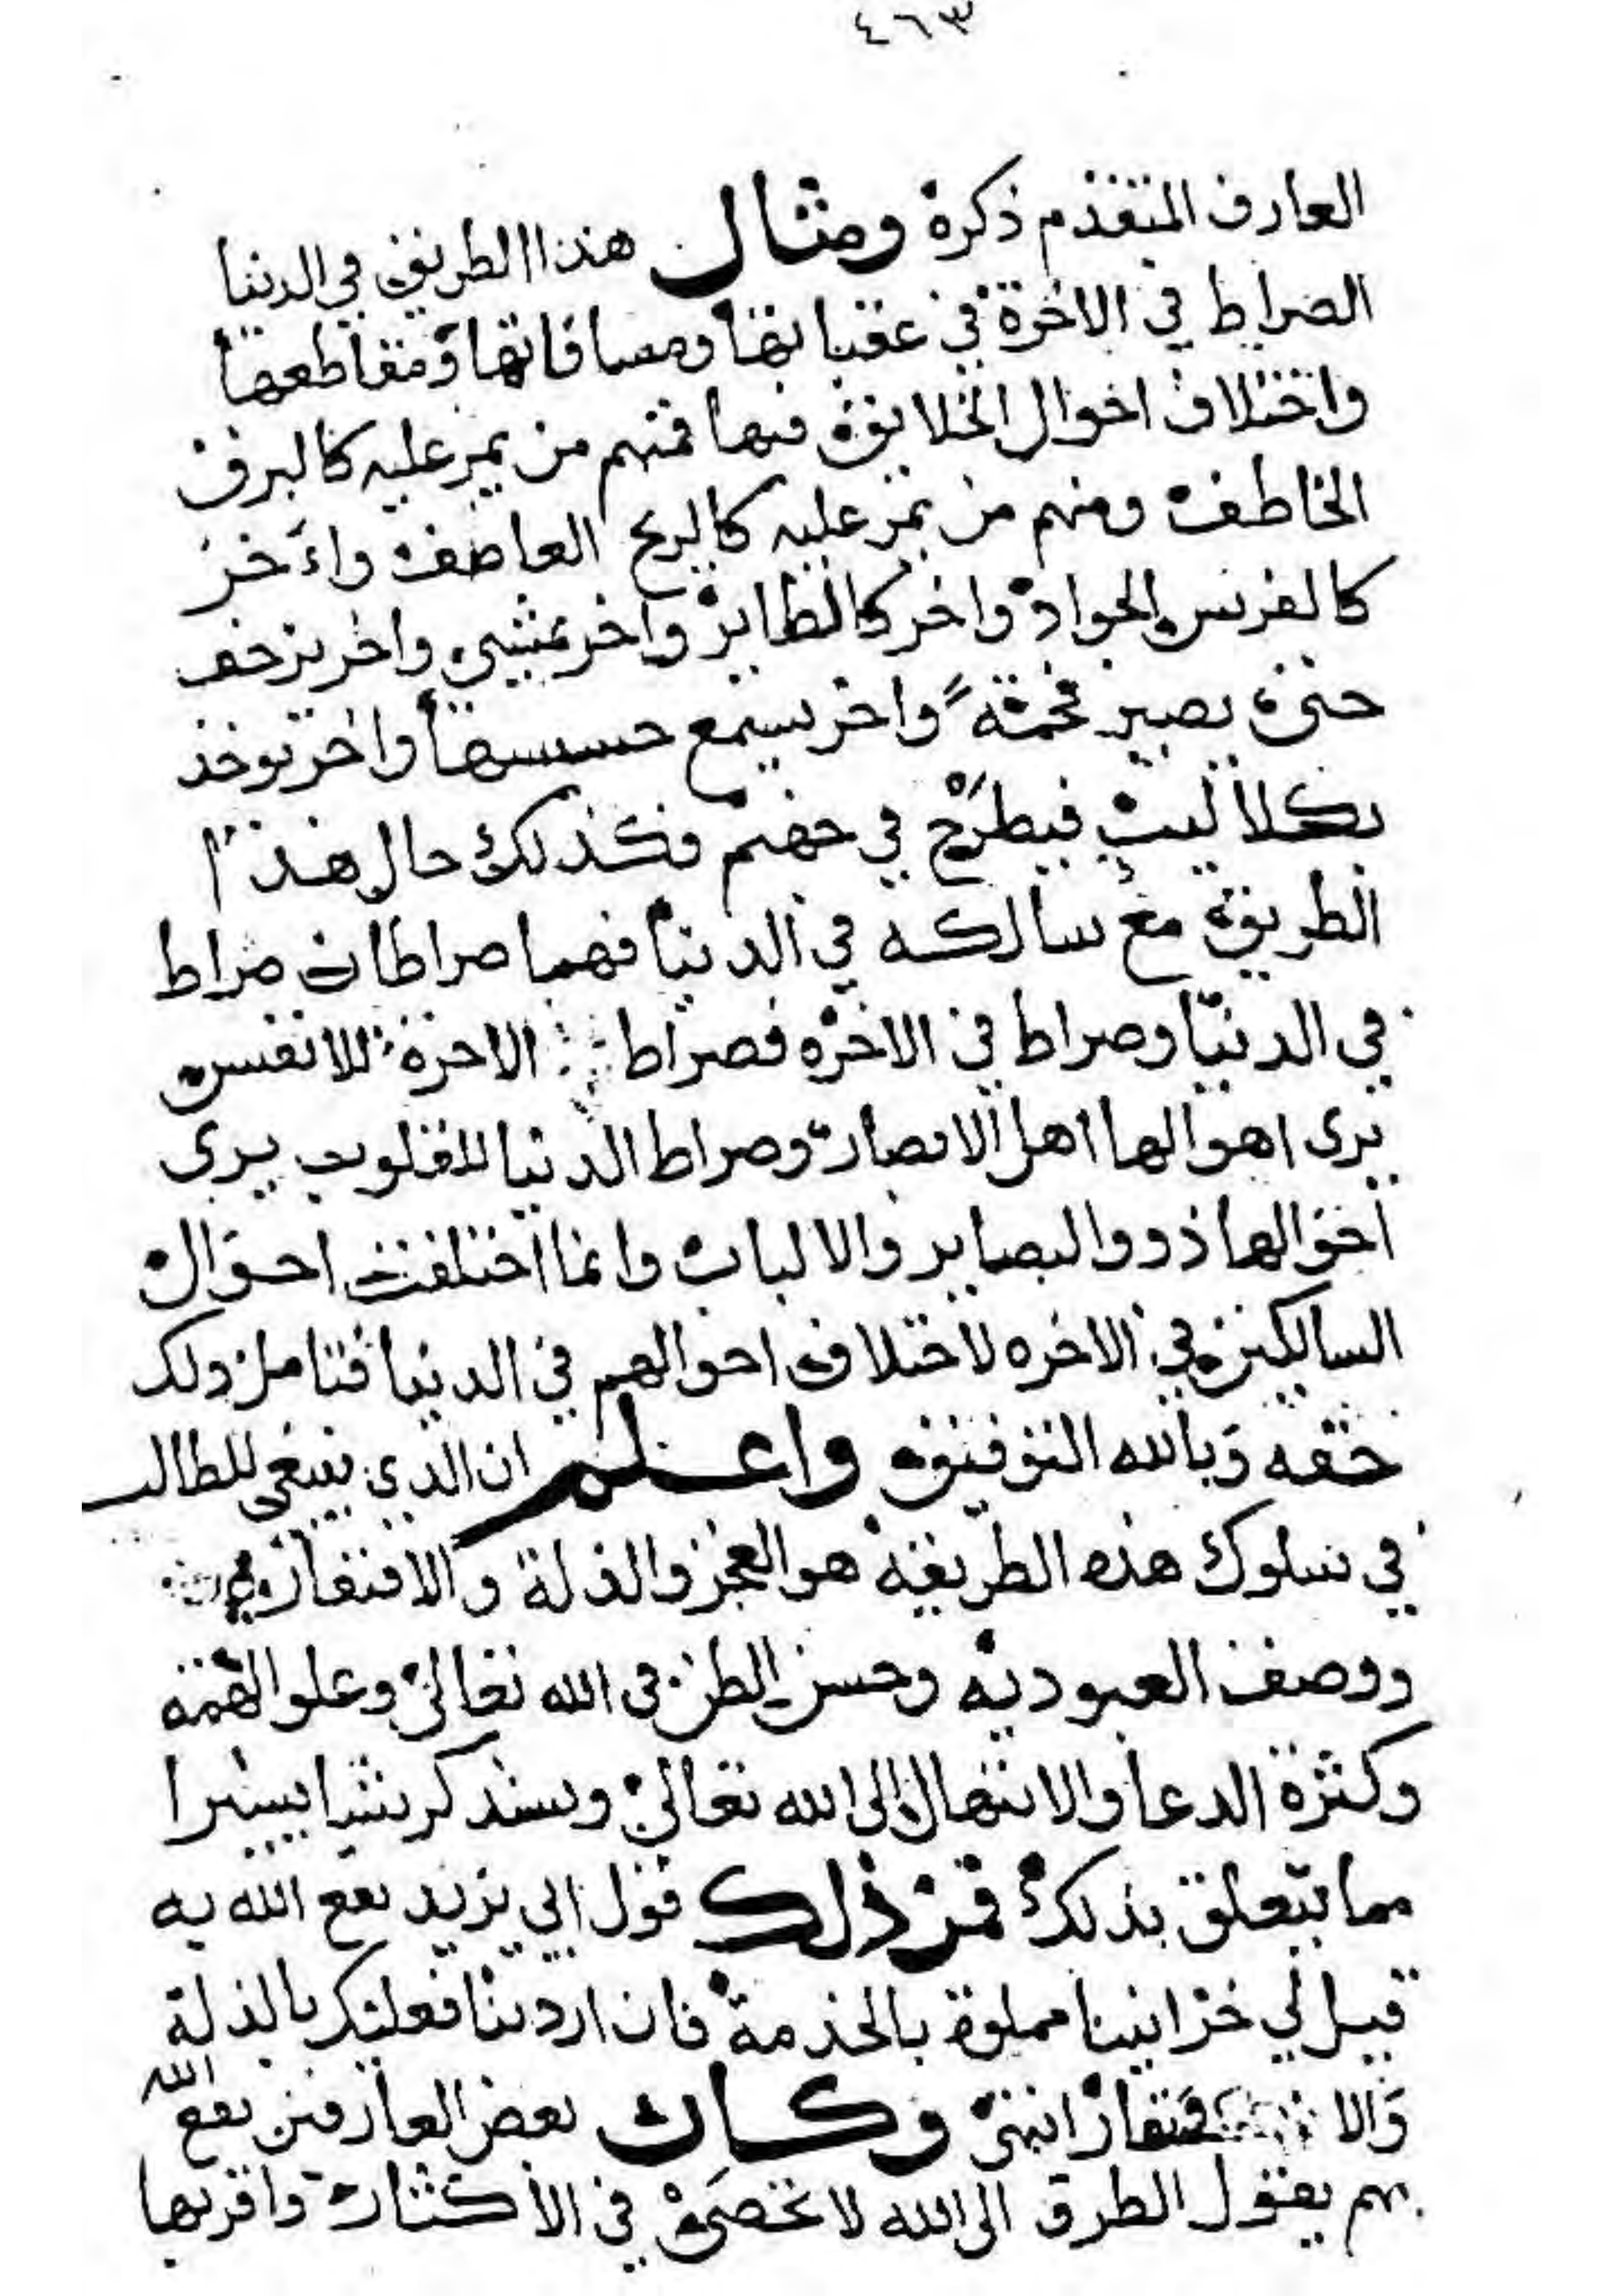 ٤٦٣
العارف المتقدم ذكره ومثال هذا الطريق في الدنيا
الصراط في الاخرة في عقباتها ومسافاتها ومقاطعها
واختلاف احوال الخلايق فيها فمنهم من يمر عليه كالبرق
الخاطف ومنهم من يمر عليه كالريح العاصف واٰخر
كالفرس الجواد واخر كالطاير واخر يمشي واخر يزحف
حتى يصير فحمة واخر يسمع حسيسها واخر يوخذ
بكلاليب فيطرح في جهنم فكذلك حال هذا
الطريق مع سالكه في الدنيا فهما صراطان صراط
في الدنيا وصراط في الاخره فصراط الاخرة للانفس
يرى اهوالها اهل الابصار وصراط الدنيا للقلوب يرى
احوالها ذووالبصاير والالباب وانما اختلفت احوال
السالكين في الاخره لاختلاف احوالهم في الدنيا فتامل ذلك
حقه وبالله التوفيق واعلم ان الذي ينبغي للطالب
في سلوك هذه الطريقة هو العجز والذلة والافتقار
ووصف العبوديه وحسن الظن في الله تعالى وعلو الهمة
وكثرة الدعا والابتهال الى الله تعالى وسنذكر شيا يسيرا
مما يتعلق بذلك فمن ذلك قول ابي يزيد نفع الله به
قيل لي خزايننا مملوة بالخدمة فان اردتنا فعليك بالذلة
والافتقار انتهى وكان بعض العارفين نفع الله
بهم يقول الطرق الى الله لا تحصى في الاكثار واقربها